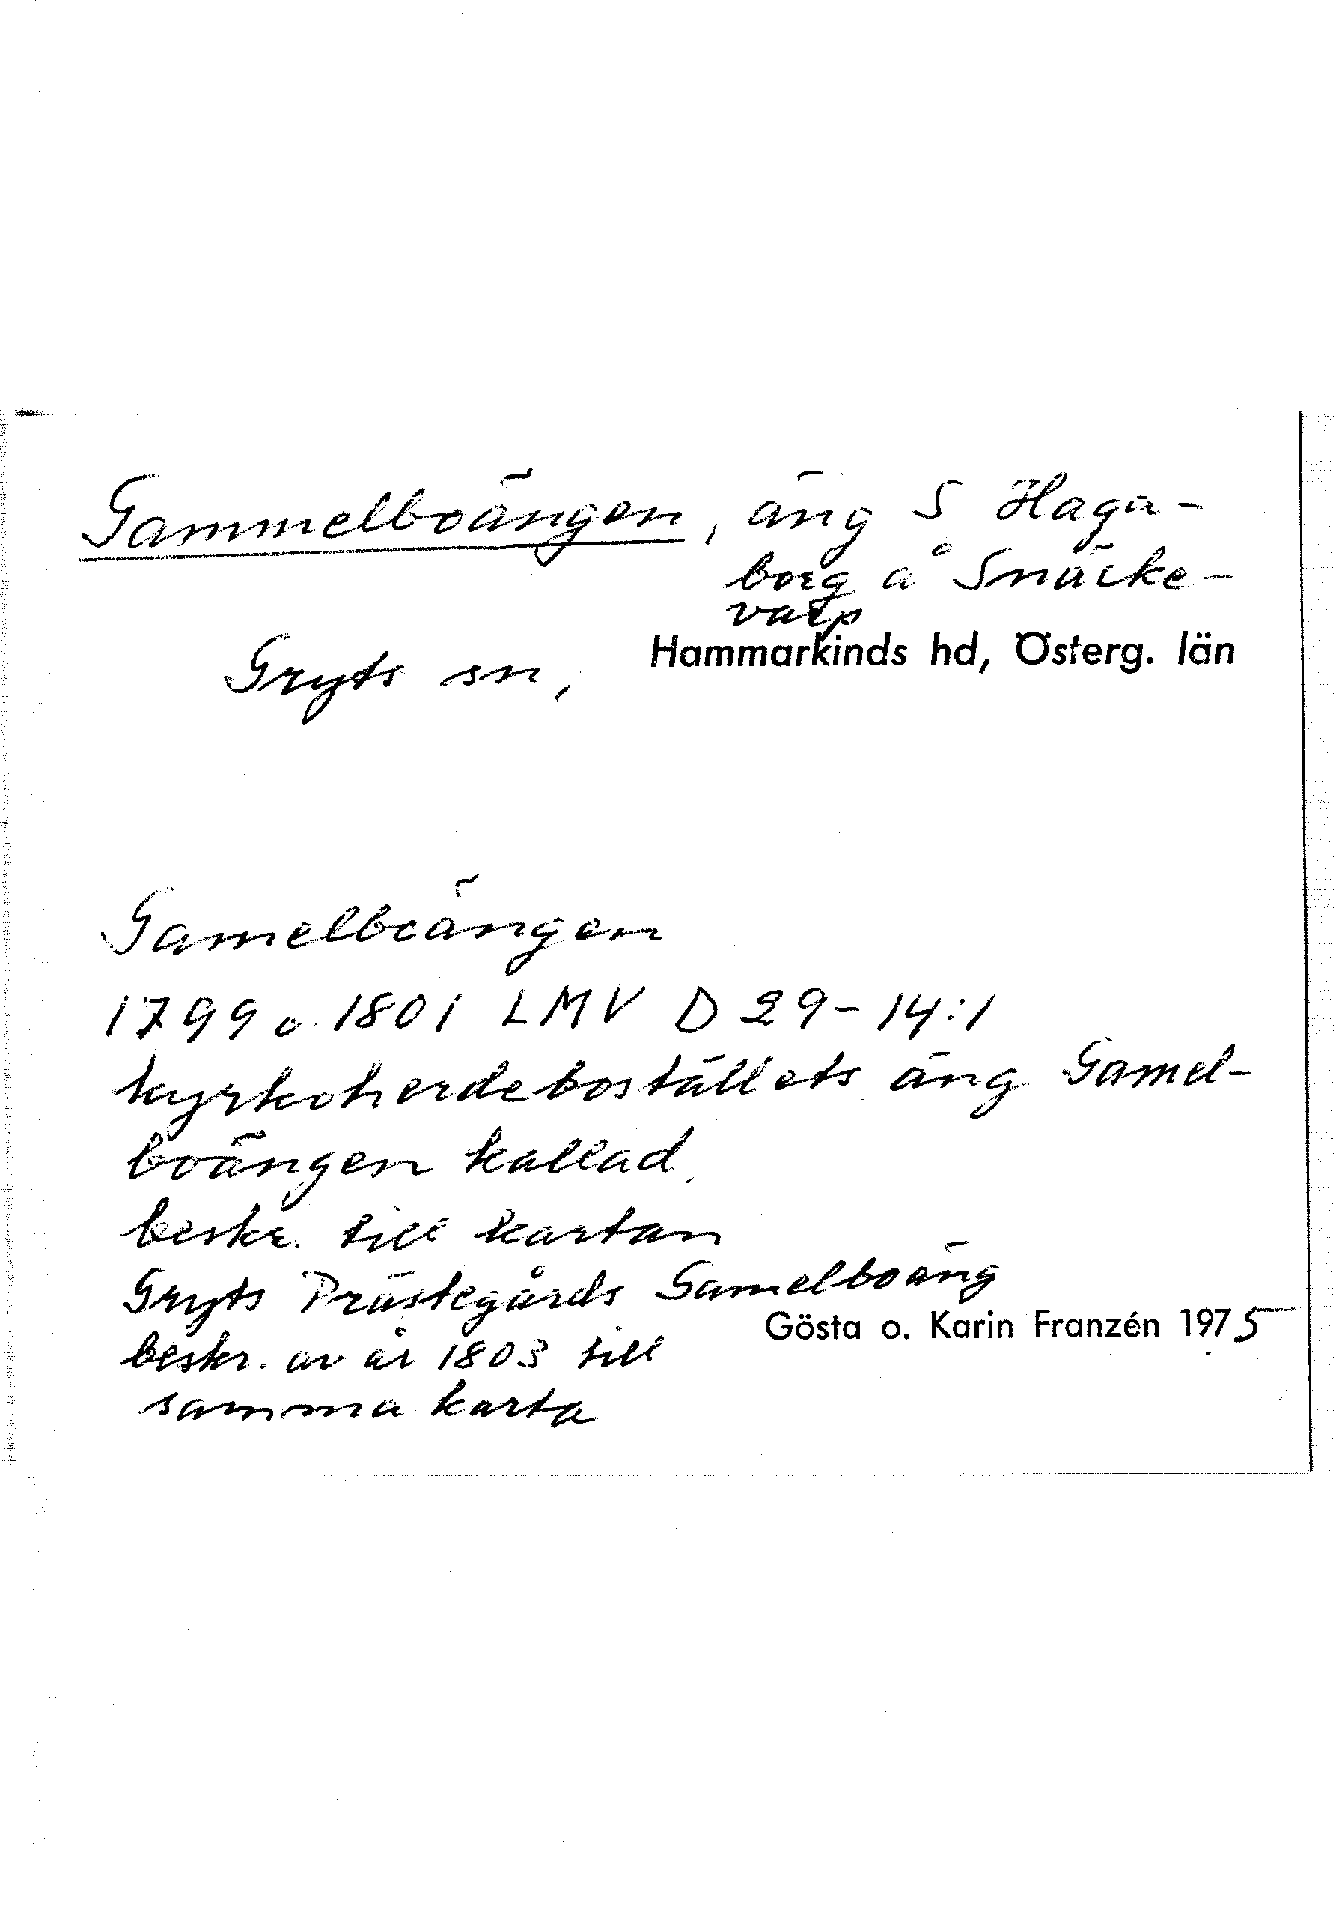 Gammelboängen, äng S Haga-
borg å Snäcke-
varp
Gryts sn, Hammarkinds hd, Österg. län
Gamelboängen
1799 o. 1801 LMV D 29-14:1
kyrkoherdebostället äng Gamel-
boängen kallad.
beskr. till kartan
Gryts Prästegårds Gamelboäng
Gösta o. Karin Franzén 1975
beskr. av år 1803 till
samma karta